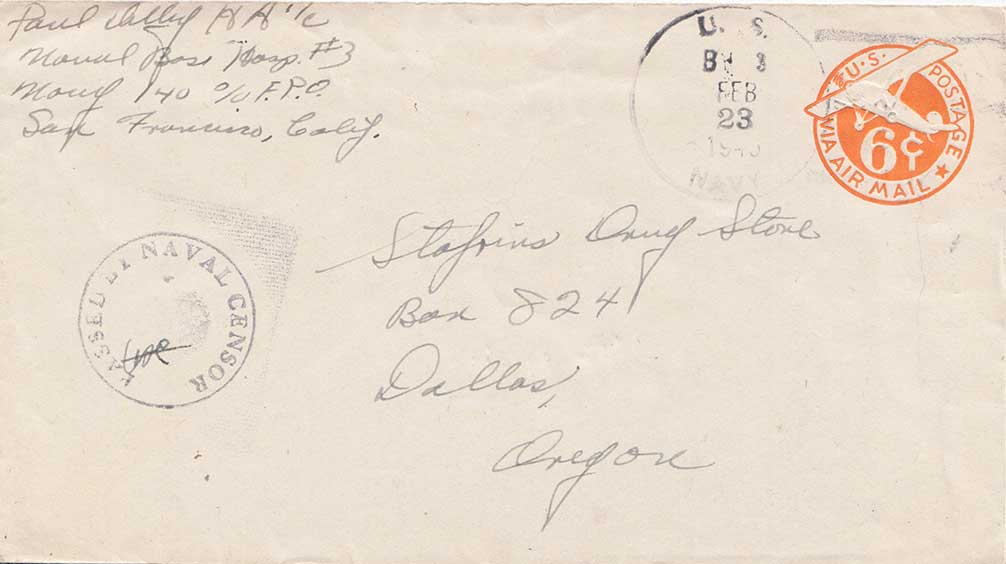 Paul H A 1/c
Naval Base Hosp. #3
Navy 140 c/o F.P.O.
San Francisco, Calif.
U. S.
FEB
23
NAVY
U.S. POSTAGE
VIA AIR MAIL
6¢
PASSED BY NAVAL CENSOR
Stafrins Drug Store
Box 824
Dallas,
Oregon